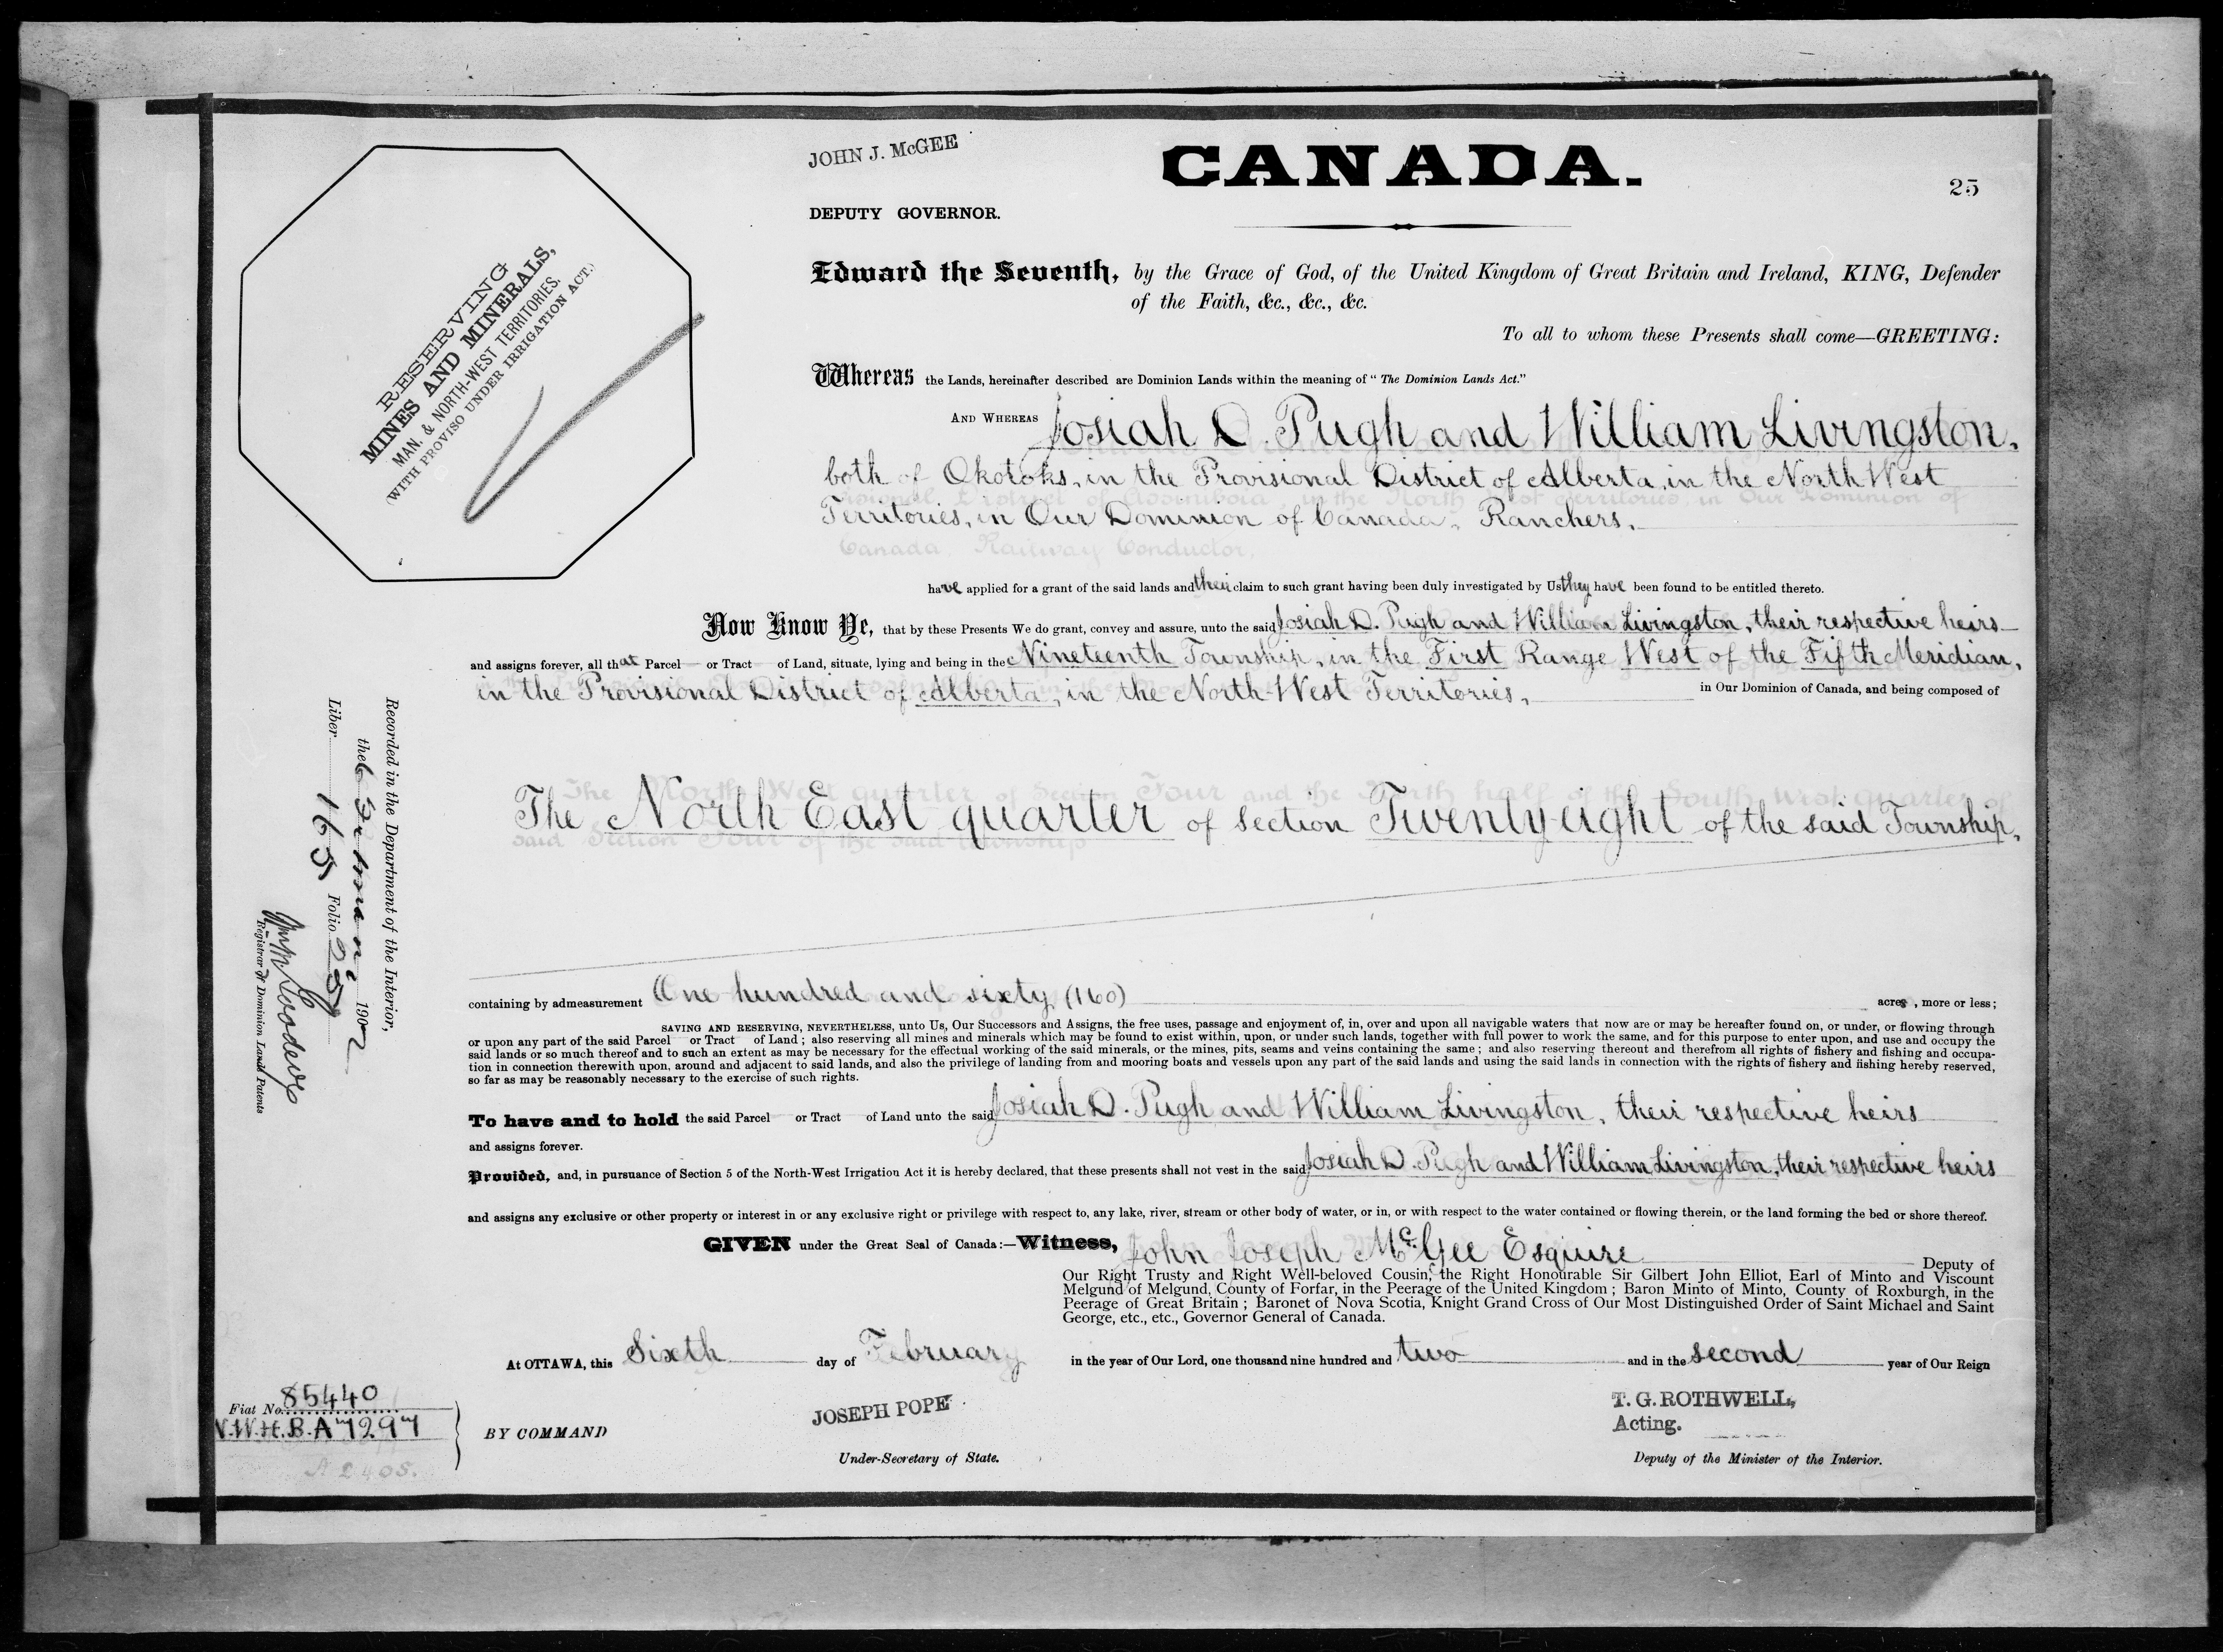 JOHN J. McGEE
CANADA.
25
DEPUTY GOVERNOR.
RESERVING
MINES AND MINERALS,
MAN. & NORTH-WEST TERRITORIES.
(WITH PROVISO UNDER IRRIGATION ACT.)
Edward the Seventh, by the Grace of God, of the United Kingdom of Great Britain and Ireland, KING, Defender
of the Faith, &c., &c., &c.
To all to whom these Presents shall come—GREETING:
Whereas the Lands, hereinafter described are Dominion Lands within the meaning of "The Dominion Lands Act."
AND WHEREAS Josiah D. Pugh and William Livingston,
both of Okotoks, in the Provisional District of Alberta, in the North West
Territories, in Our Dominion of Canada, Ranchers,
Canada, Railway Conductor,
have applied for a grant of the said lands and their claim to such grant having been duly investigated by Us they have been found to be entitled thereto.
Now Know Ye, that by these Presents We do grant, convey and assure, unto the said Josiah D. Pugh and William Livingston, their respective heirs
and assigns forever, all that Parcel or Tract of Land, situate, lying and being in the Nineteenth Township, in the First Range West of the Fifth Meridian,
in the Provisional District of Alberta, in the North-West Territories, in Our Dominion of Canada, and being composed of
The North East quarter of section Twenty eight of the said Township,
containing by admeasurement One hundred and sixty (160) acres, more or less;
SAVING AND RESERVING, NEVERTHELESS, unto Us, Our Successors and Assigns, the free uses, passage and enjoyment of, in, over and upon all navigable waters that now are or may be hereafter found on, or under, or flowing through
or upon any part of the said Parcel or Tract of Land; also reserving all mines and minerals which may be found to exist within, upon, or under such lands, together with full power to work the same, and for this purpose to enter upon, and use and occupy the
said lands or so much thereof and to such an extent as may be necessary for the effectual working of the said minerals, or the mines, pits, seams and veins containing the same; and also reserving thereout and therefrom all rights of fishery and fishing and occupa-
tion in connection therewith upon, around and adjacent to said lands, and also the privilege of landing from and mooring boats and vessels upon any part of the said lands and using the said lands in connection with the rights of fishery and fishing hereby reserved,
so far as may be reasonably necessary to the exercise of such rights.
To have and to hold the said Parcel or Tract of Land unto the said Josiah D. Pugh and William Livingston, their respective heirs
and assigns forever.
Provided, and, in pursuance of Section 5 of the North-West Irrigation Act it is hereby declared, that these presents shall not vest in the said Josiah D. Pugh and William Livingston, their respective heirs
and assigns any exclusive or other property or interest in or any exclusive right or privilege with respect to, any lake, river, stream or other body of water, or in, or with respect to the water contained or flowing therein, or the land forming the bed or shore thereof.
GIVEN under the Great Seal of Canada:—Witness, John Joseph McGee Esquire Deputy of
Our Right Trusty and Right Well-beloved Cousin, the Right Honourable Sir Gilbert John Elliot, Earl of Minto and Viscount
Melgund of Melgund, County of Forfar, in the Peerage of the United Kingdom; Baron Minto of Minto, County of Roxburgh, in the
Peerage of Great Britain; Baronet of Nova Scotia, Knight Grand Cross of Our Most Distinguished Order of Saint Michael and Saint
George, etc., etc., Governor General of Canada.
At OTTAWA, this Sixth day of February in the year of Our Lord, one thousand nine hundred and two and in the second year of Our Reign
Fiat No. 85440
N.W.H.B.A 7297
A 2405.
BY COMMAND
JOSEPH POPE
Under-Secretary of State.
T. G. ROTHWELL,
Acting.
Deputy of the Minister of the Interior.
Recorded in the Department of the Interior,
the 6 1902
Liber 165 Folio 25
Registrar of Dominion Lands Patents